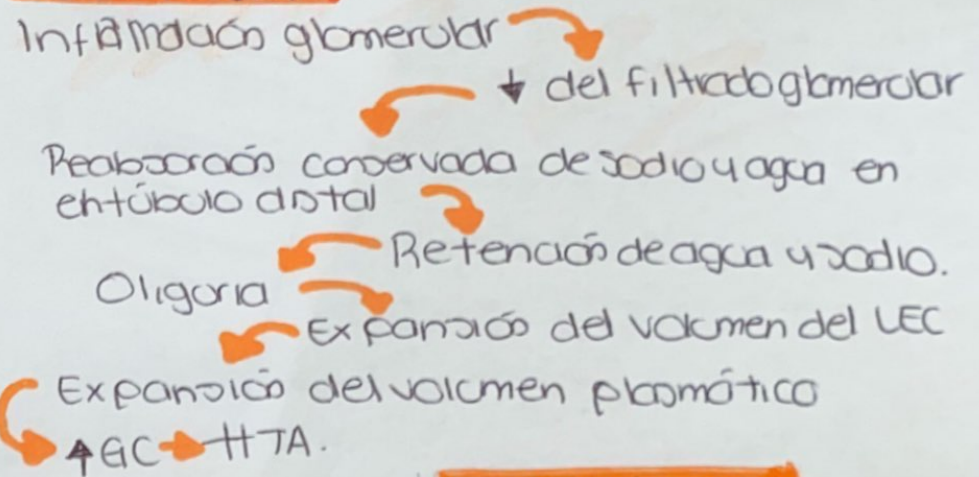 Inflamación glomerular
↓ del filtrado glomerular
Reabsorción conservada de sodio y agua en
el túbulo distal
Retención de agua y sodio.
Oliguria
Expansión del volumen del LEC
Expansión del volumen plasmático
↑GC → HTA.